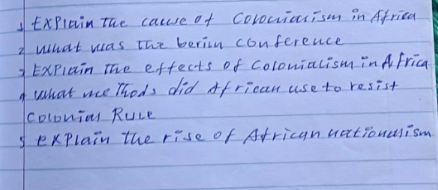 1 Explain the cause of Colocianism in Africa
2 what was the berlin conference
3 Explain the effects of Colonialism in Africa
4 what methods did African use to resist
Colonial Rule
5 explain the rise of African nationalism